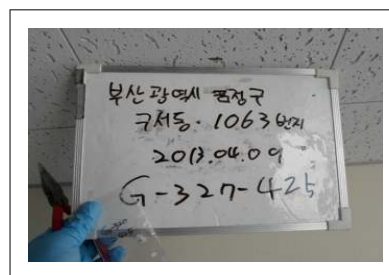 부산광역시 금정구
구서동. 1063번지
2013.04.09
G-327-425